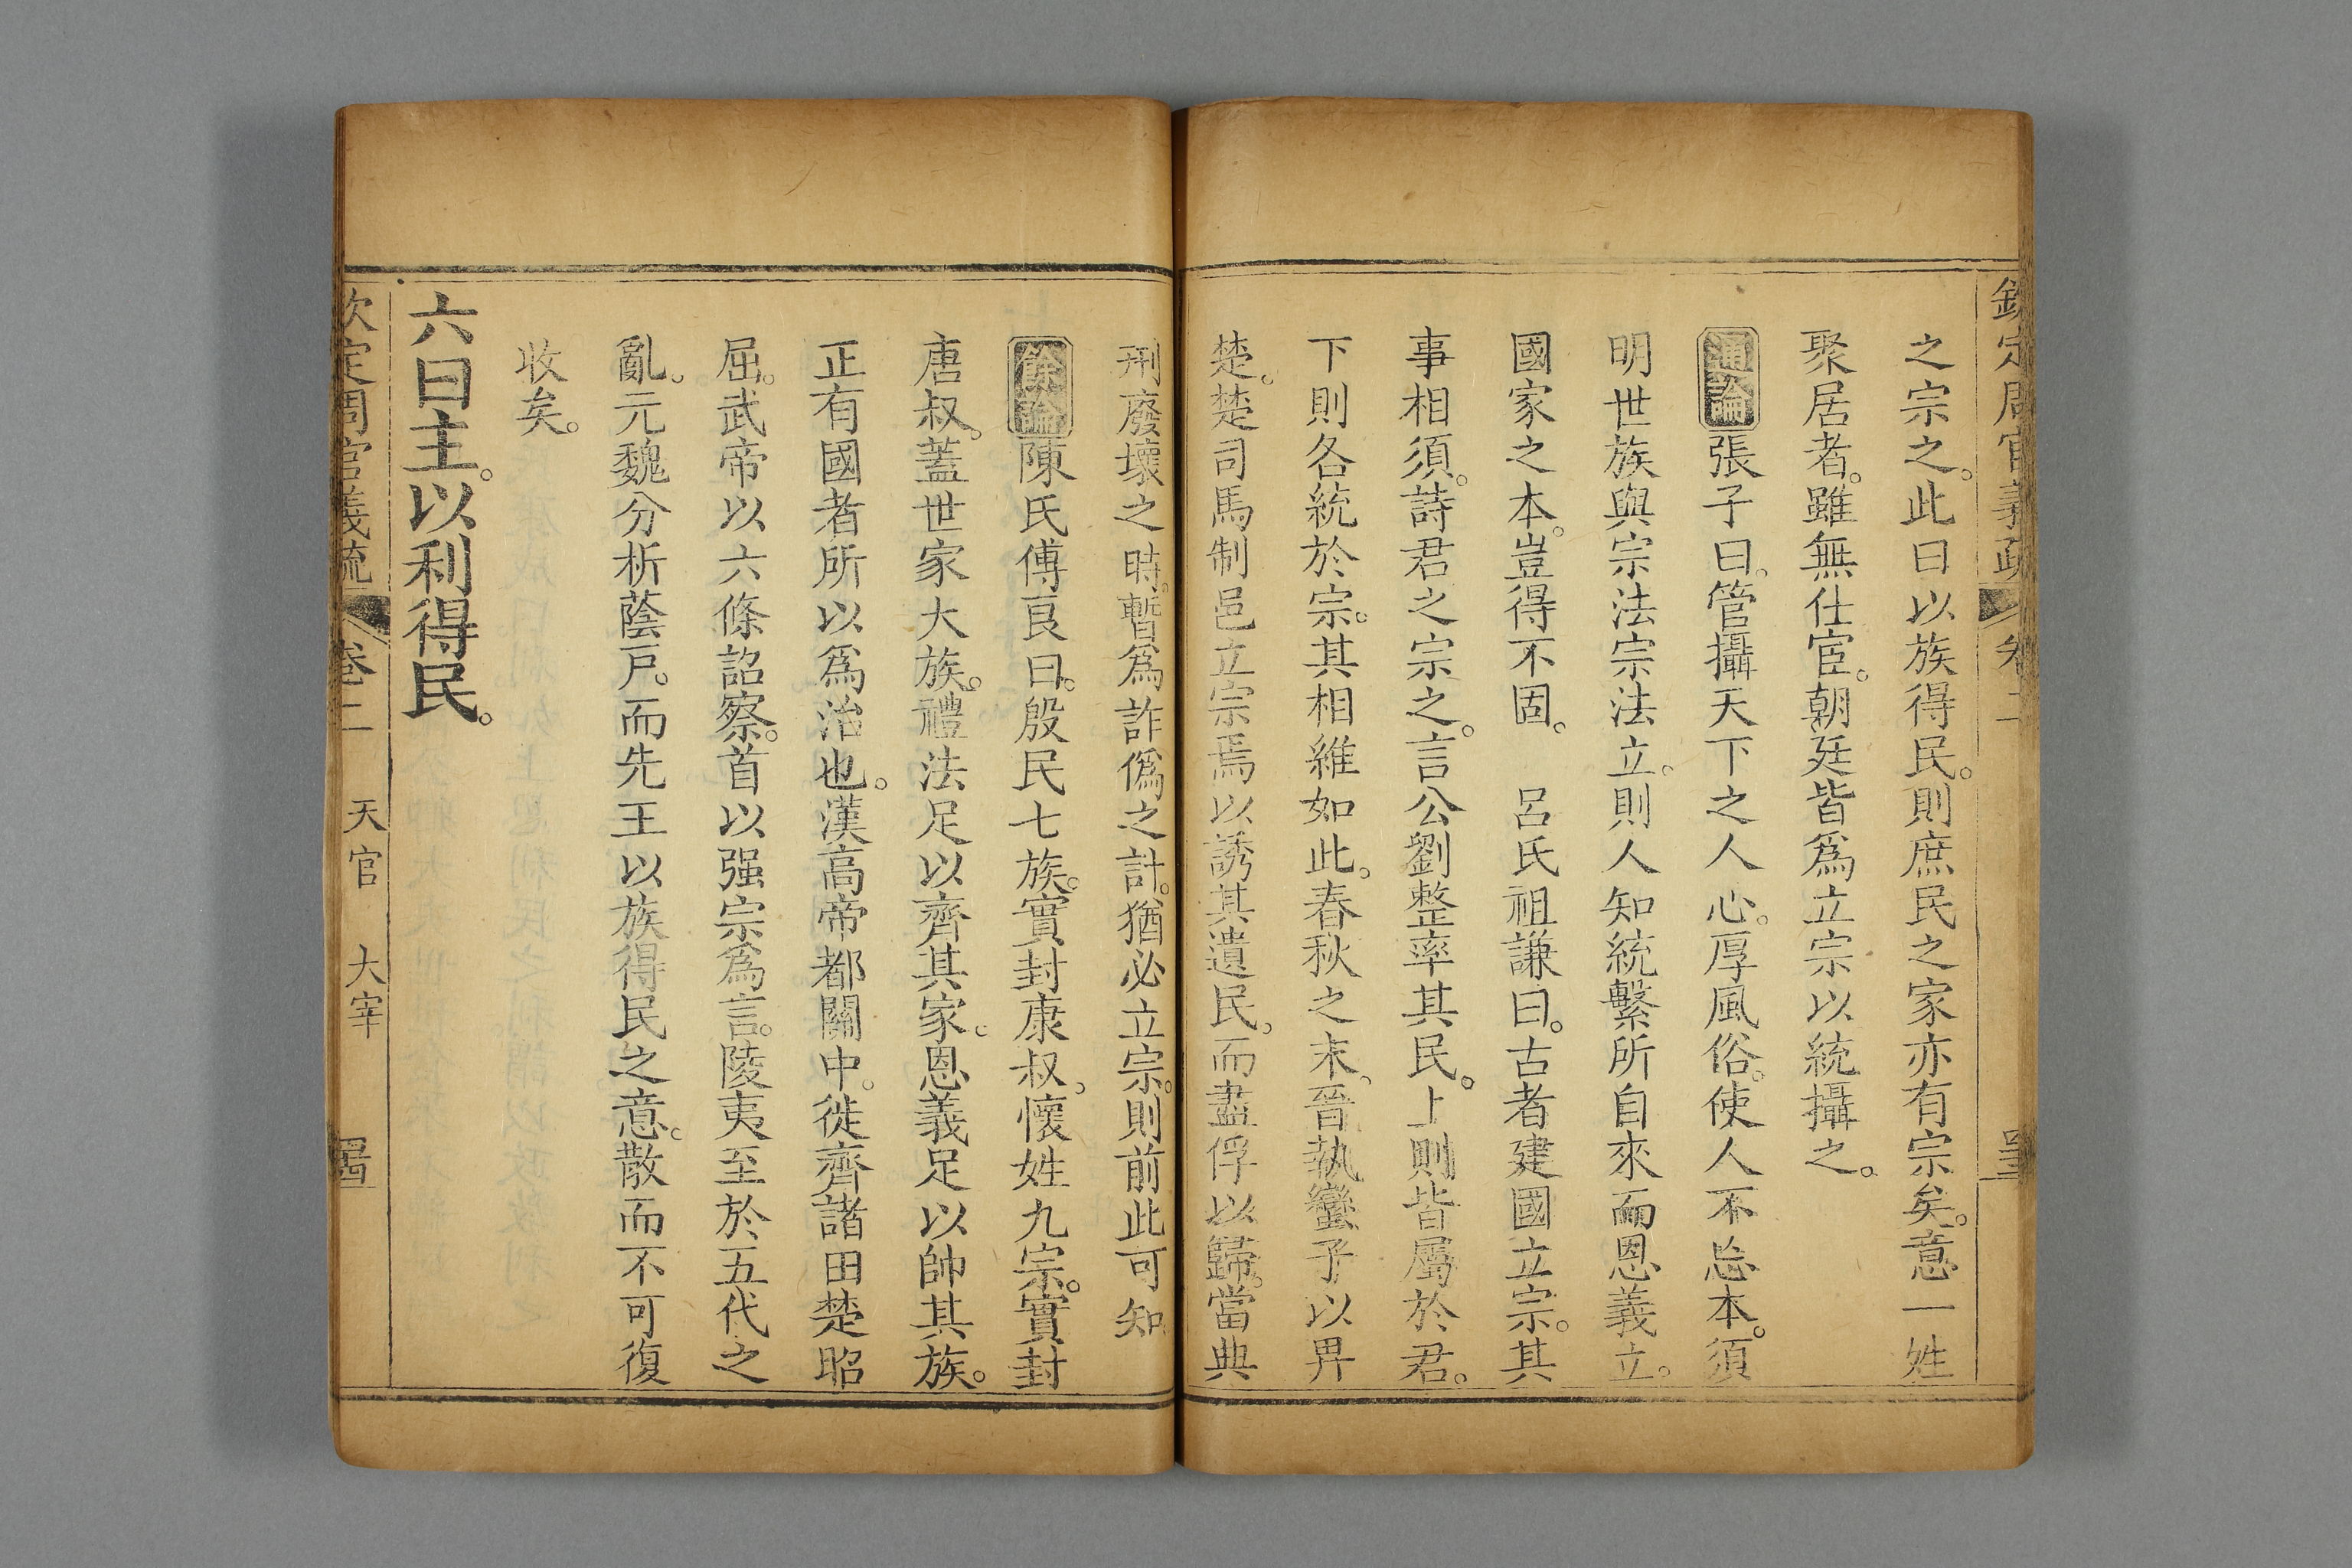 欽定周官義疏 卷二
之宗之。此曰以族得民。則庶民之家亦有宗矣。意一姓
聚居者。雖無仕宦。朝廷皆爲立宗以統攝之。
通論張子曰。管攝天下之人心。厚風俗。使人不忘本。須
明世族與宗法宗法立。則人知統繫所自來而恩義立。
國家之本。豈得不固。 呂氏祖謙曰。古者建國立宗。其
事相須。詩君之宗之。言公劉整率其民。上則皆屬於君。
下則各統於宗。其相維如此。春秋之末、晉執蠻子以畀
楚。楚司馬制邑立宗焉以誘其遺民。而盡俘以歸。當典
刑廢壞之時。暫爲詐僞之計。猶必立宗。則前此可知
餘論陳氏傅良曰。殷民七族。實封康叔、懷姓九宗。實封
唐叔。蓋世家大族。禮法足以齊其家。恩義足以帥其族。
正有國者所以爲治也。漢高帝都關中。徙齊諸田楚昭
屈。武帝以六條詔察。首以强宗爲言。陵夷至於五代之
亂。元魏分析蔭戶。而先王以族得民之意。散而不可復
收矣。
六曰主。以利得民。
欽定周官義疏 卷二 天官 大宰